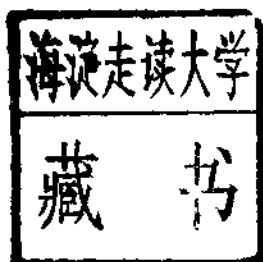 海淀走读大学
藏书